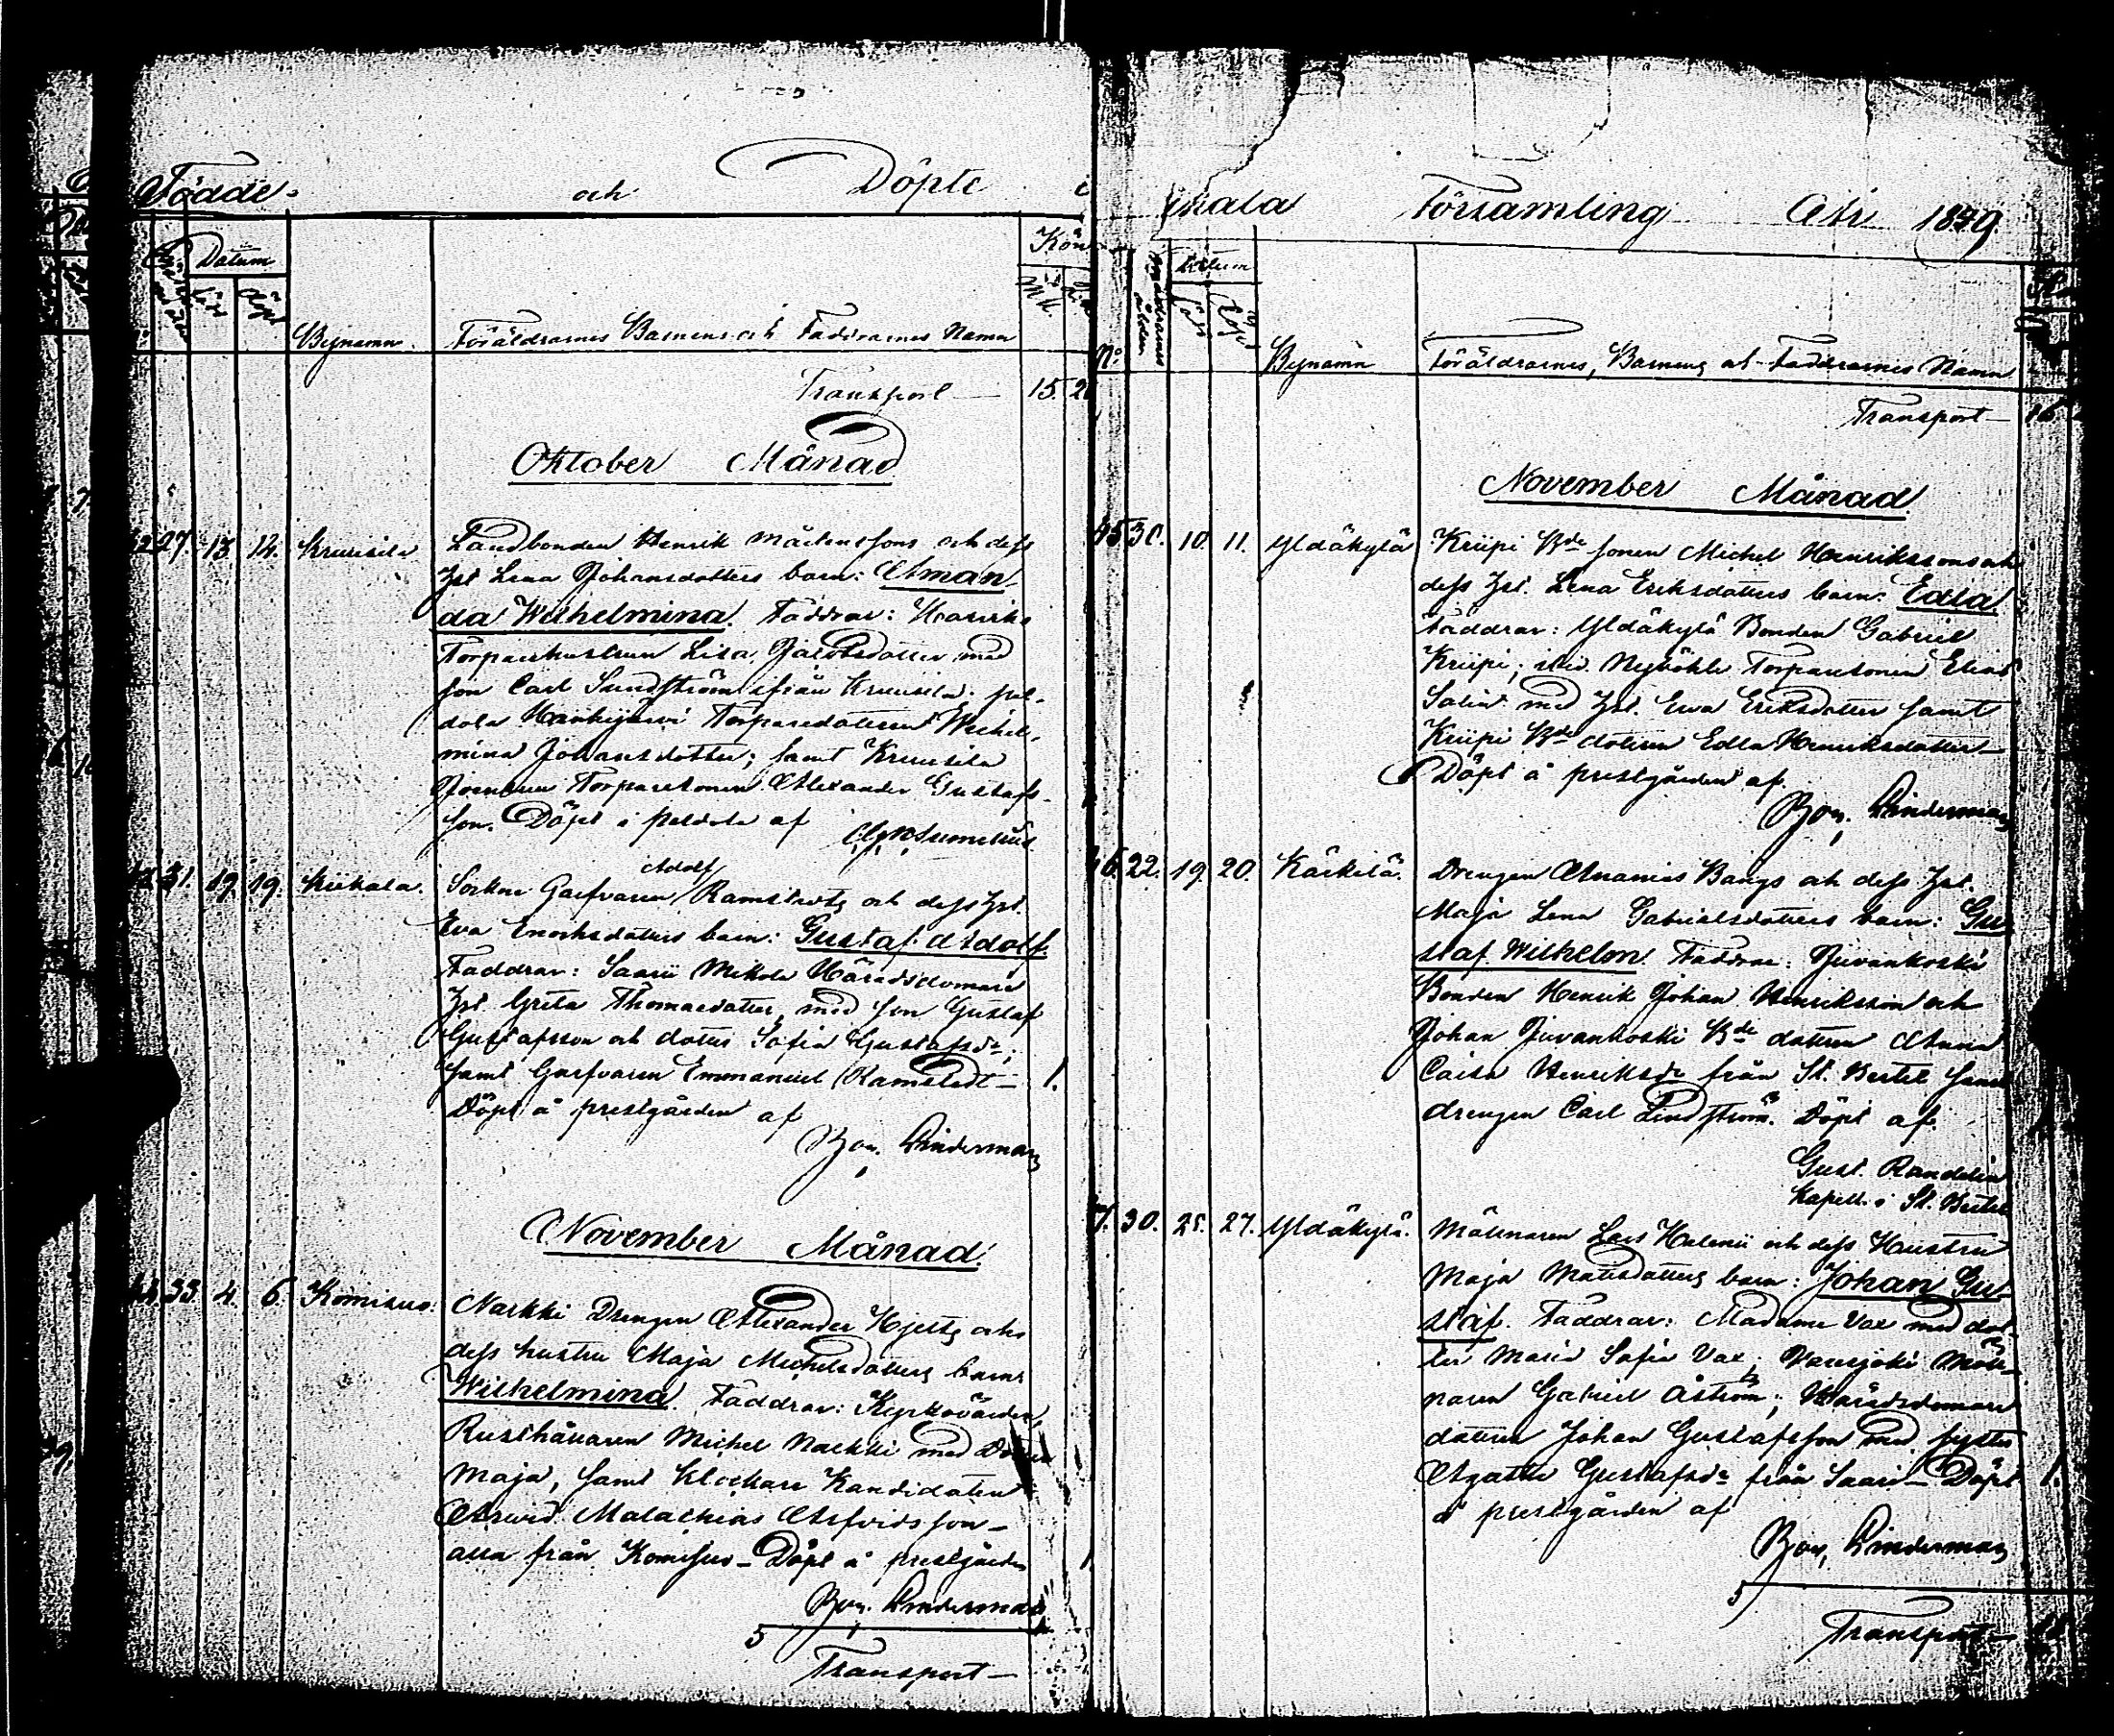 Födde och Döpte i
Datum
Född Döpt
Bynamn. Föräldrarnes Barnens och Faddrarnes Namn
Kön
Transport — 15. 2
Oktober Månad
27. 13. 14. Kruusila Landbonden Henrik Mårtenssons och dess
hst Lena Johansdotters barn: Aman
da Wilhelmina. Faddrar:
Torparehustrun Lisa Jacobsdotter med
son Carl Sundström ifrån Kruusila. pel-
dola Torparedottren Wilhel-
mina Johansdotter; samt Kruusila
Torparesonen Alexander Gustafs-
son. Döpt i Peldola af
31. 19. 19. Kiikala. Sockne Garfvaren Adolf Ramstedts och dess hst.
Eva Enoksdotters barn: Gustaf Adolf.
Faddrar: Saari Mikola Häradsdomare
hst Greta Thomasdotter, med son Gustaf
Gustafsson och dotter Sofia Gustafsdr;
samt Garfvaren Emmanuel Ramstedt — 1.
Döpt å prestgården af
Linderman
November Månad.
33. 4. 6. Komisuo. Narkki Drengen Alexander Hjelts och
dess hustru Maja Michelsdotters barn
Wilhelmina. Faddrar: Kyrkovärden,
Rusthållaren Michel Narkki med Dotter
Maja, samt Klockare Kandidaten
Arwid Malachias Arfvidsson —
alla från Komisuo — Döpt å prestgården 1
Linderman
5
Transport —
kala Församling År 1879.
Datum
Född Döpt
No. Föräldrarnes ålder
Bynamn Föräldrarnes, Barnens och Faddrarnes Namn
Transport —
November Månad.
45 30. 10. 11. Yldäkylä Kriipi Bde sonen Michel Henrikssons och
dess hst. Lena Eriksdotters barn. Edla.
Faddrar: Yldäkylä Bonden Gabriel
Kriipi; Torparesonen Elias
Salin med hst. Ewa Eriksdotter samt
Kriipi Bde dottren Edla Henriksdotter —
Döpt å prestgården af
Linderman
22. 19. 20. Kärkelä. Drengen Ananias Bangs och dess hst.
Maja Lena Gabrielsdotters barn: Gu
staf Wilhelm. Faddrar: Juvankoski
Bonden Henrik Johan Henriksson och
Johan Juvankoski Bde dottren Anna
Caisa Henriksdr från St. Bertel samt
drengen Carl Lindström. Döpt af
Gust. Randelin
Kapell. i St. Bertel
7. 30. 25. 27. Yldäkylä. Mölnaren Lars Helenii och dess Hustru
Maja Mattsdotters barn: Johan Gu-
staf. Faddrar: Madame Vax med dot-
ter Maria Sofia Vax; Möl-
naren Gabriel Åström; Häradsdomare
Johan Gustafsson med syster
Agatha Gustafsdr från Saari — Döpt 1.
å prestgården af
Linderman
5
Transport —